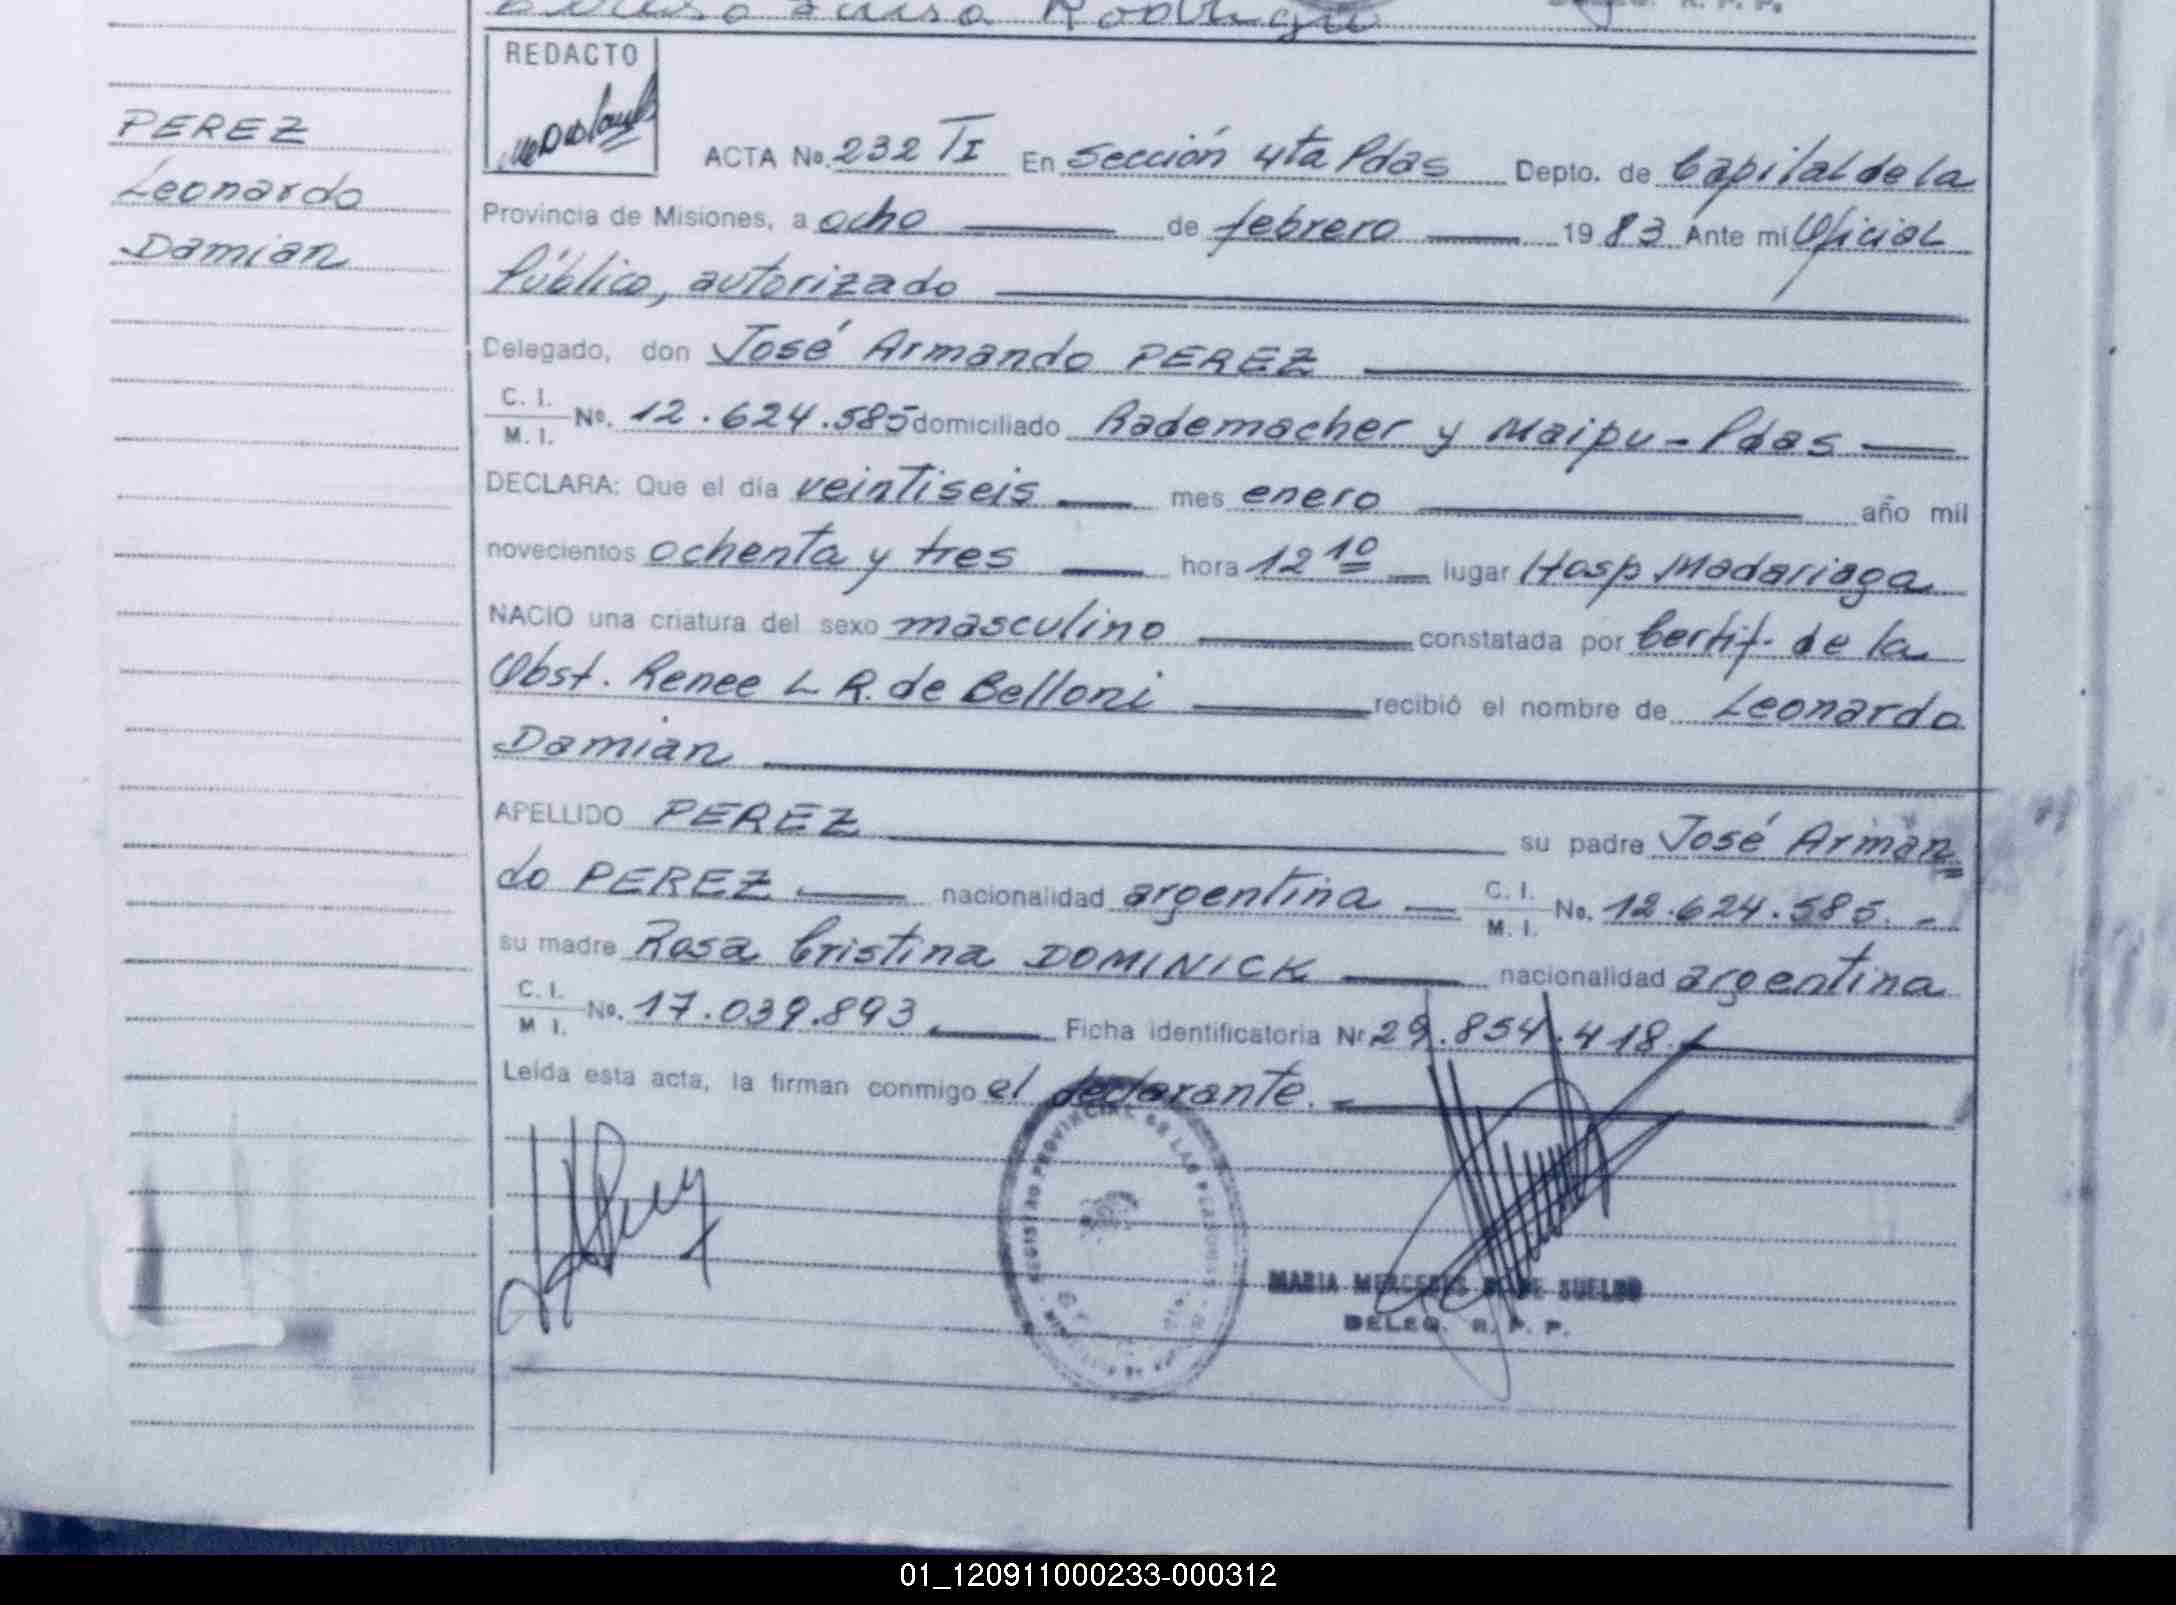 REDACTO
PEREZ
Leonardo
Damian
ACTA No. 232 TI En Sección 4ta Pdas Depto. de Capital de la
Provincia de Misiones, a ocho de febrero 1983 Ante mi Oficial
Público, autorizado
Delegado, don José Armando PEREZ
C. I.
M. I. No. 12.624.585 domiciliado Rademacher y Maipu - Pdas
DECLARA: Que el día veintiseis mes enero año mil
novecientos ochenta y tres hora 12 10 lugar Hosp Madariaga
NACIO una criatura del sexo masculino constatada por Certif. de la
Obst. Renee L R. de Belloni recibió el nombre de Leonardo
Damian
APELLIDO PEREZ su padre José Arman
do PEREZ nacionalidad argentina C. I.
M. I. No. 12.624.585.-
su madre Rosa Cristina DOMINICK nacionalidad argentina
C. I.
M I. No. 17.039.893 Ficha identificatoria Nr 29.854.418.-
Leída esta acta, la firman conmigo el declarante.-
REGISTRO PROVINCIAL DE LAS PERSONAS
MARIA MERCEDES DE SUELDO
DELEG. R. P. P.
01_120911000233-000312